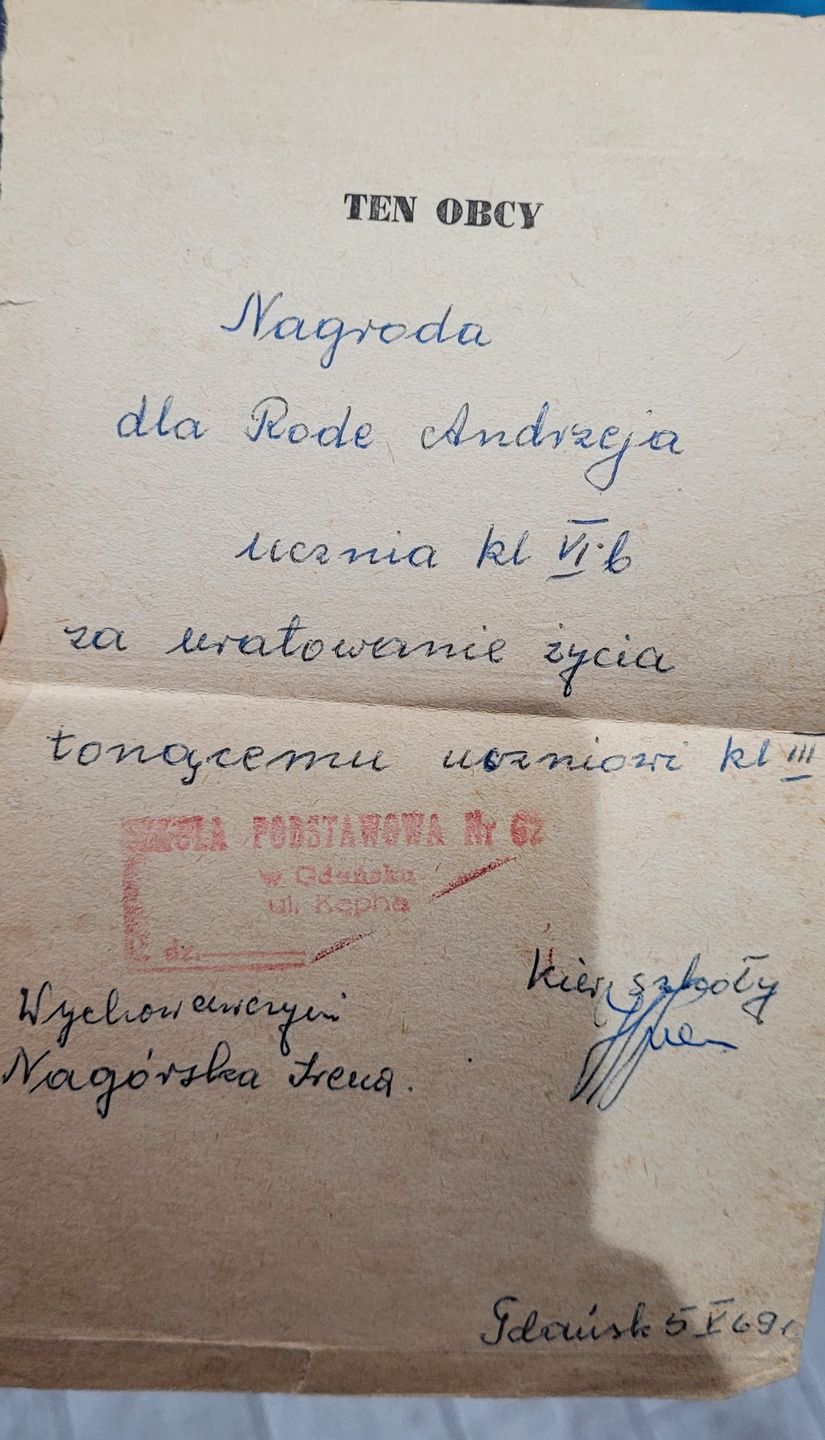 TEN OBCY
Nagroda
dla Rode Andrzeja
ucznia kl VI b
za uratowanie życia
tonącemu uczniowi kl III
SZKOŁA PODSTAWOWA Nr 62
w Gdańsku
ul. Kępna
L. dz.
Kier. szkoły
Wychowawczyni
Nagórska Irena.
Gdańsk 5 V 69 r